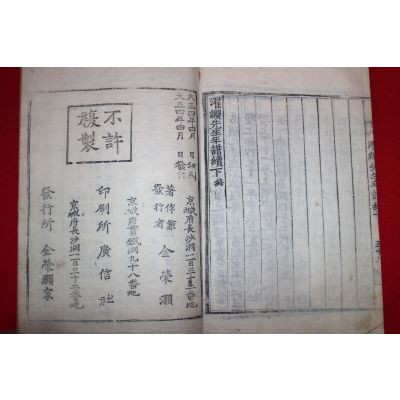 濯纓先生年譜續下終
大正四年四月 日印刷
大正四年四月 日發行
不許複製
京城府長沙洞一百三十三番地
著作兼發行者 金榮灝
京城府貫鐵洞九十八番地
印刷所 廣信社
京城府長沙洞一百三十三番地
發行所 金榮灝家